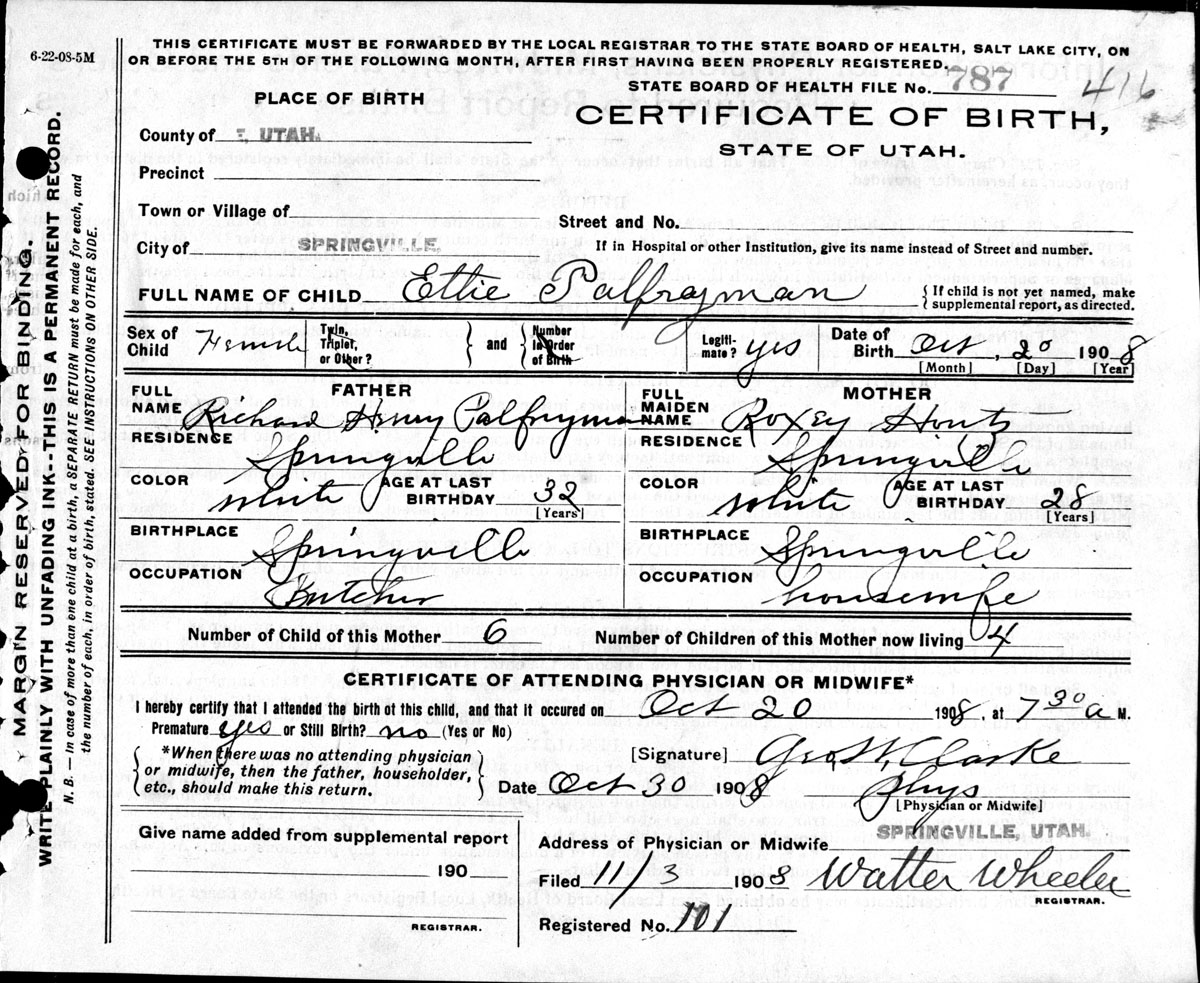 6-22-08-5M
THIS CERTIFICATE MUST BE FORWARDED BY THE LOCAL REGISTRAR TO THE STATE BOARD OF HEALTH, SALT LAKE CITY, ON
OR BEFORE THE 5TH OF THE FOLLOWING MONTH, AFTER FIRST HAVING BEEN PROPERLY REGISTERED.
STATE BOARD OF HEALTH FILE No. 787 416
PLACE OF BIRTH
CERTIFICATE OF BIRTH,
STATE OF UTAH.
County of UTAH.
Precinct
Town or Village of
Street and No.
City of SPRINGVILLE,
If in Hospital or other Institution, give its name instead of Street and number.
FULL NAME OF CHILD Ettie Palfrayman
{ If child is not yet named, make
supplemental report, as directed.
Sex of Child Female
Twin, Triplet, or Other? } and { Number in Order of Birth
Legiti-mate? yes
Date of Birth Oct, 20 1908
[Month] [Day] [Year]
FATHER
FULL NAME Richard Henry Palfryman
RESIDENCE Springville
COLOR White AGE AT LAST BIRTHDAY 32 [Years]
BIRTHPLACE Springville
OCCUPATION Butcher
MOTHER
FULL MAIDEN NAME Roxey Houtz
RESIDENCE Springville
COLOR White AGE AT LAST BIRTHDAY 28 [Years]
BIRTHPLACE Springville
OCCUPATION housewife
Number of Child of this Mother 6 Number of Children of this Mother now living 4
CERTIFICATE OF ATTENDING PHYSICIAN OR MIDWIFE*
I hereby certify that I attended the birth of this child, and that it occured on Oct 20 1908, at 7 30 a M.
Premature yes or Still Birth? no (Yes or No)
{ *When there was no attending physician
or midwife, then the father, householder,
etc., should make this return. }
[Signature] Geo. W. Clarke
Date Oct 30 1908 Phys
[Physician or Midwife]
Give name added from supplemental report
190
REGISTRAR.
Address of Physician or Midwife SPRINGVILLE, UTAH.
Filed 11/3 1908 Walter Wheeler
REGISTRAR.
Registered No. 101
MARGIN RESERVED FOR BINDING.
WRITE PLAINLY WITH UNFADING INK--THIS IS A PERMANENT RECORD.
N. B. — In case of more than one child at a birth, a SEPARATE RETURN must be made for each, and
the number of each, in order of birth, stated. SEE INSTRUCTIONS ON OTHER SIDE.